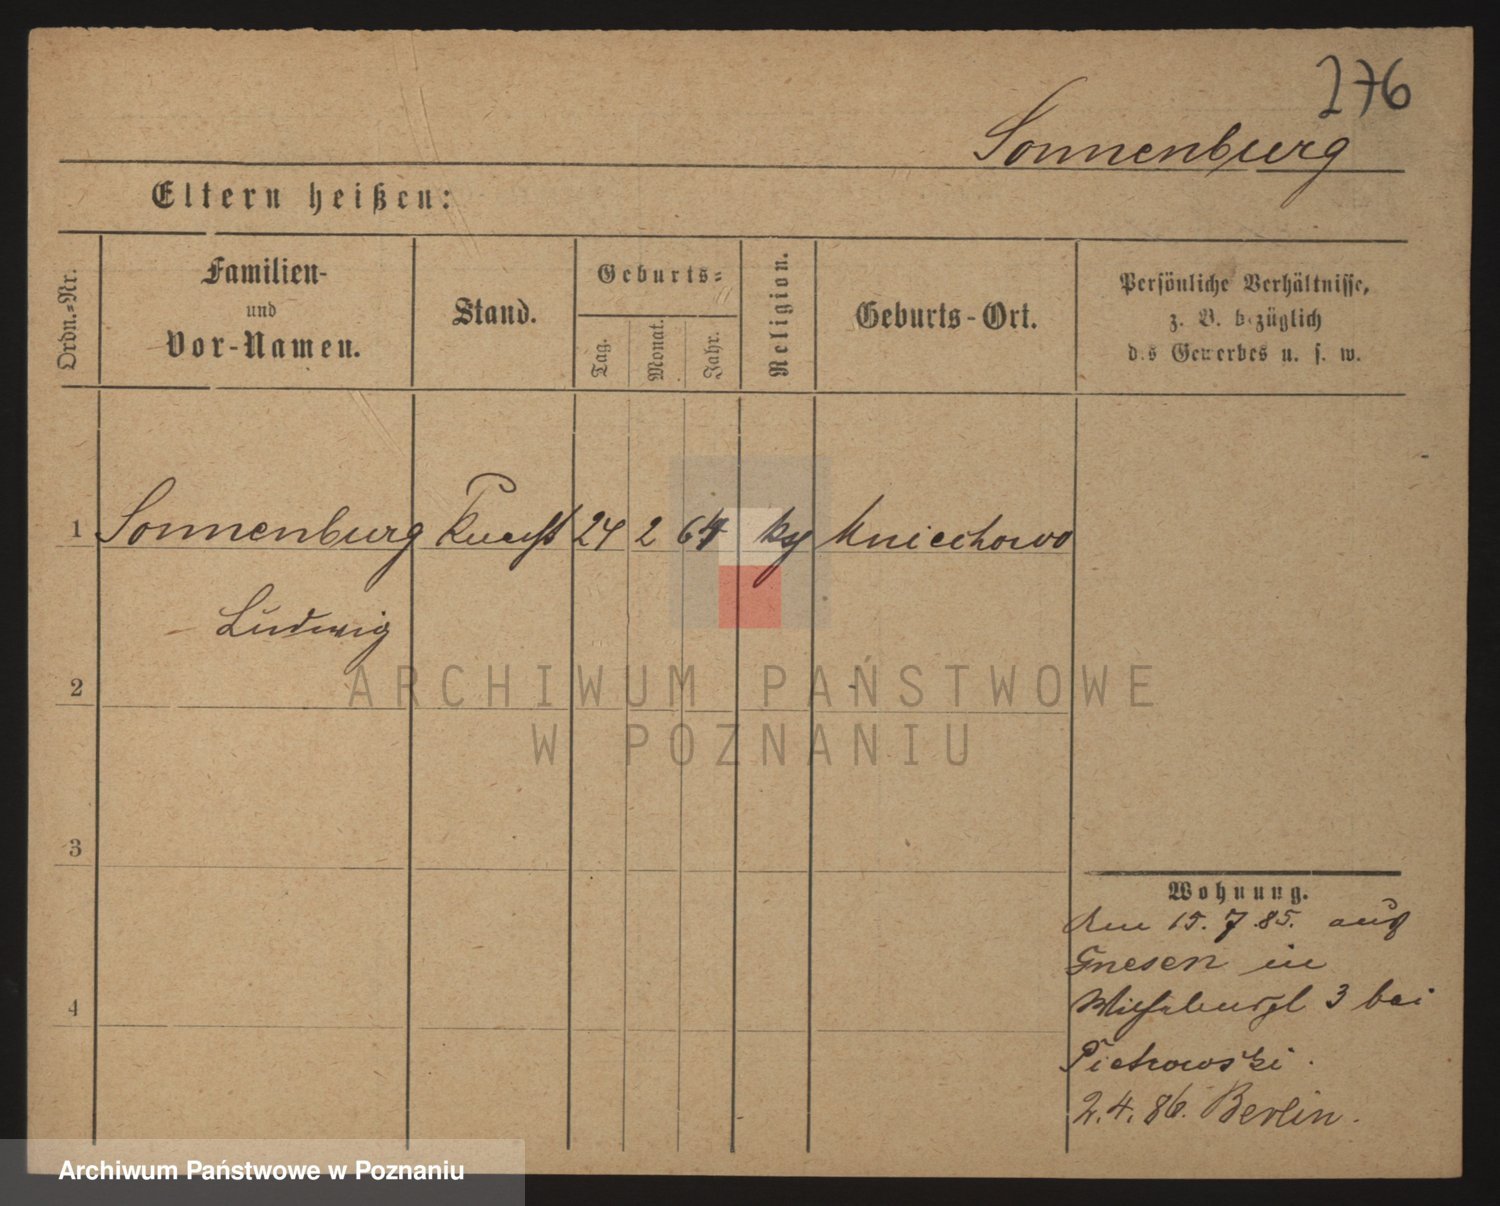 276
Sonnenburg
Eltern heißen:
Ordn.-Nr.
Familien-
und
Vor-Namen.
Stand.
Geburts-
Tag.
Monat.
Jahr.
Religion.
Geburts-Ort.
Persönliche Verhältnisse,
z. B. bezüglich
des Gewerbes u. s. w.
1 Sonnenburg Knecht 24 2 64 Kniechowo
Ludwig
2
ARCHIWUM PAŃSTWOWE
W POZNANIU
3
4
Wohnung.
15. 7. 85. aus
Gnesen in
3 bei
Pietrowski.
2. 4. 86. Berlin.
Archiwum Państwowe w Poznaniu